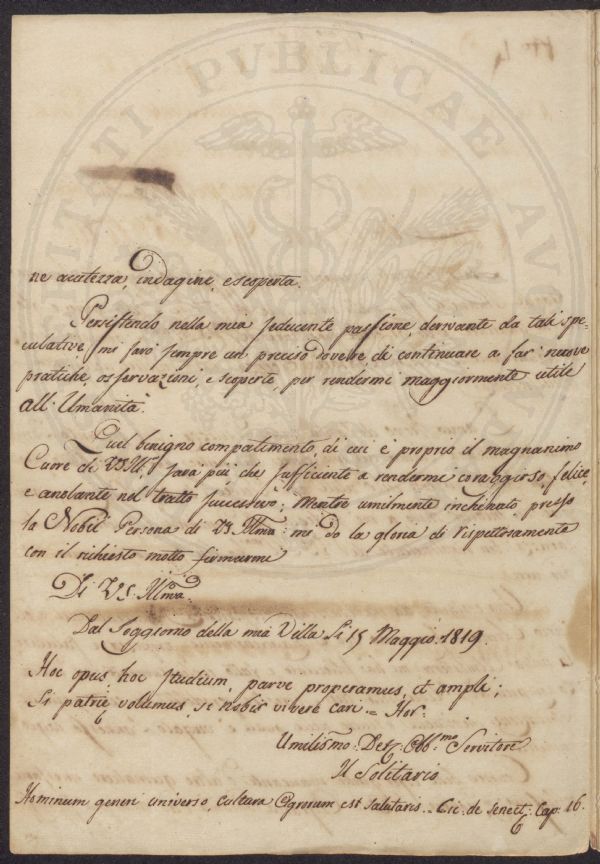 UTILITATI PUBLICAE AVGVSTA
ne acutezza, indagine, e scoperta.
Persistendo nella mia seducente passione, derivante da tali spe=
culative, mi farò sempre un preciso dovere di continuare a far nuove
pratiche, osservazioni, e scoperte, per rendermi maggiormente utile
all' Umanità.
Quel benigno compatimento, di cui è proprio il magnanimo
Cuore di VS Ill: sarà più, che sufficiente a rendermi coraggioso, felice,
e anelante nel tratto successivo; Mentre umilmente inchinato presso
la Nobil Persona di VS Illma: mi do la gloria di rispettosamente
con il richiesto motto firmarmi
Di V.S. Illma
Dal Soggiorno della mia Villa li 15 Maggio 1819.
Hoc opus, hoc studium, parvi properamus, et ampli;
Si patrię volumus, si nobis vivere cari = Hor:
Umilissmo: Devo Obbmo Servitore
Il Solitario
Hominum generi universo, cultura Agrorum est salutaris = Cic. de senect: Cap. 16.